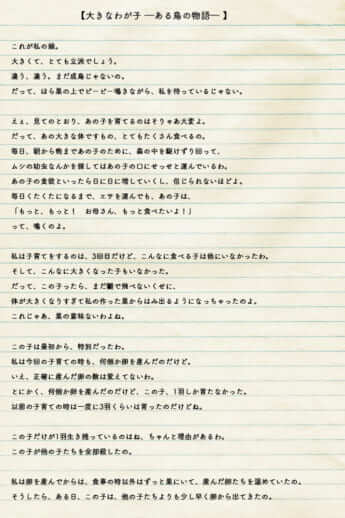 【大きなわが子 ―ある鳥の物語― 】
これが私の娘。
大きくて、とても立派でしょう。
違う、違う。まだ成鳥じゃないの。
だって、ほら巣の上でピーピー鳴きながら、私を待っているじゃない。
えぇ、見てのとおり、あの子を育てるのはそりゃあ大変よ。
だって、あの大きな体ですもの、とてもたくさん食べるの。
毎日、朝から晩まであの子のために、森の中を駆けずり回って、
ムシの幼虫なんかを探してはあの子の口にせっせと運んでいるわ。
あの子の食欲といったら日に日に増していくし、信じられないほどよ。
毎日くたくたになるまで、エサを運んでも、あの子は、
「もっと、もっと！　お母さん、もっと食べたいよ！」
って、鳴くのよ。
私は子育てをするのは、3回目だけど、こんなに食べる子は他にいなかったわ。
そして、こんなに大きくなった子もいなかった。
だって、この子ったら、まだ雛で飛べないくせに、
体が大きくなりすぎて私の作った巣からはみ出るようになっちゃったのよ。
これじゃあ、巣の意味ないわよね。
この子は最初から、特別だったわ。
私は今回の子育ての時も、何個か卵を産んだのだけど。
いえ、正確に産んだ卵の数は覚えてないわ。
とにかく、何個か卵を産んだのだけど、この子、1羽しか育たなかった。
以前の子育ての時は一度に3羽くらいは育ったのだけどね。
この子だけが1羽生き残っているのはね、ちゃんと理由があるわ。
この子が他の子たちを全部殺したの。
私は卵を産んでからは、食事の時以外はずっと巣にいて、産んだ卵たちを温めていたの。
そうしたら、ある日、この子は、他の子たちよりも少し早く卵から出てきたの。